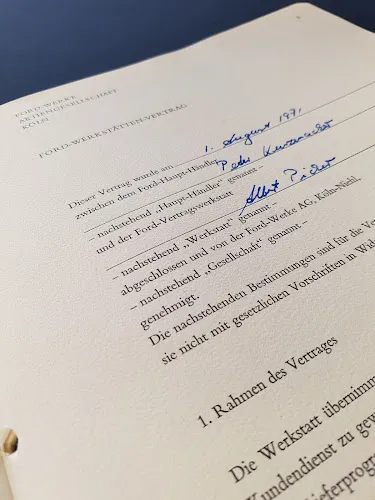 FORD-WERKE
AKTIENGESELLSCHAFT
KÖLN
FORD-WERKSTÄTTEN-VERTRAG
Dieser Vertrag wurde am 1. August 1971
zwischen dem Ford-Haupt-Händler Peter
– nachstehend „Haupt-Händler" genannt –
und der Ford-Vertragswerkstatt Albert
– nachstehend „Werkstatt" genannt –
abgeschlossen und von der Ford-Werke AG, Köln-Niehl,
– nachstehend „Gesellschaft" genannt –
genehmigt.
Die nachstehenden Bestimmungen sind für die Ve
sie nicht mit gesetzlichen Vorschriften in Wid
1. Rahmen des Vertrages
Die Werkstatt übernimm
Kundendienst zu gew
ieferprogra